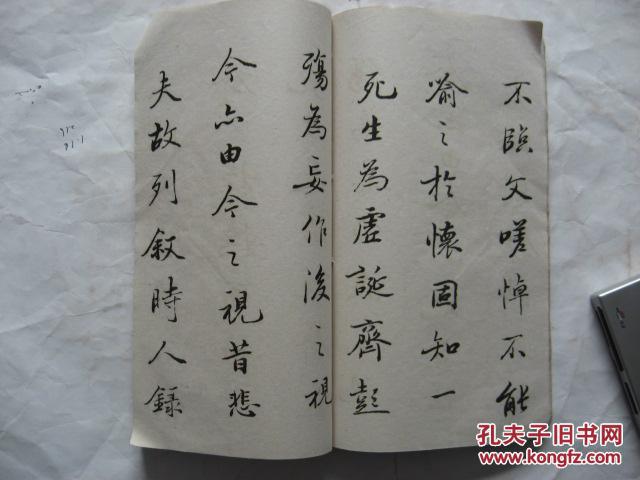 不臨文嗟悼不能
喻之於懷固知一
死生為虛誕齊彭
殤為妄作後之視
今亦由今之視昔悲
夫故列叙時人錄
孔夫子旧书网
www.kongfz.com